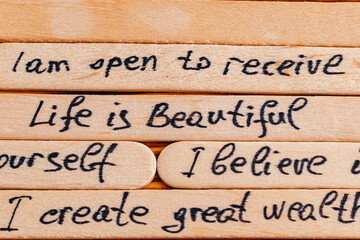 I am open to receive
Life is Beautiful
ourself I believe i
I create great wealth